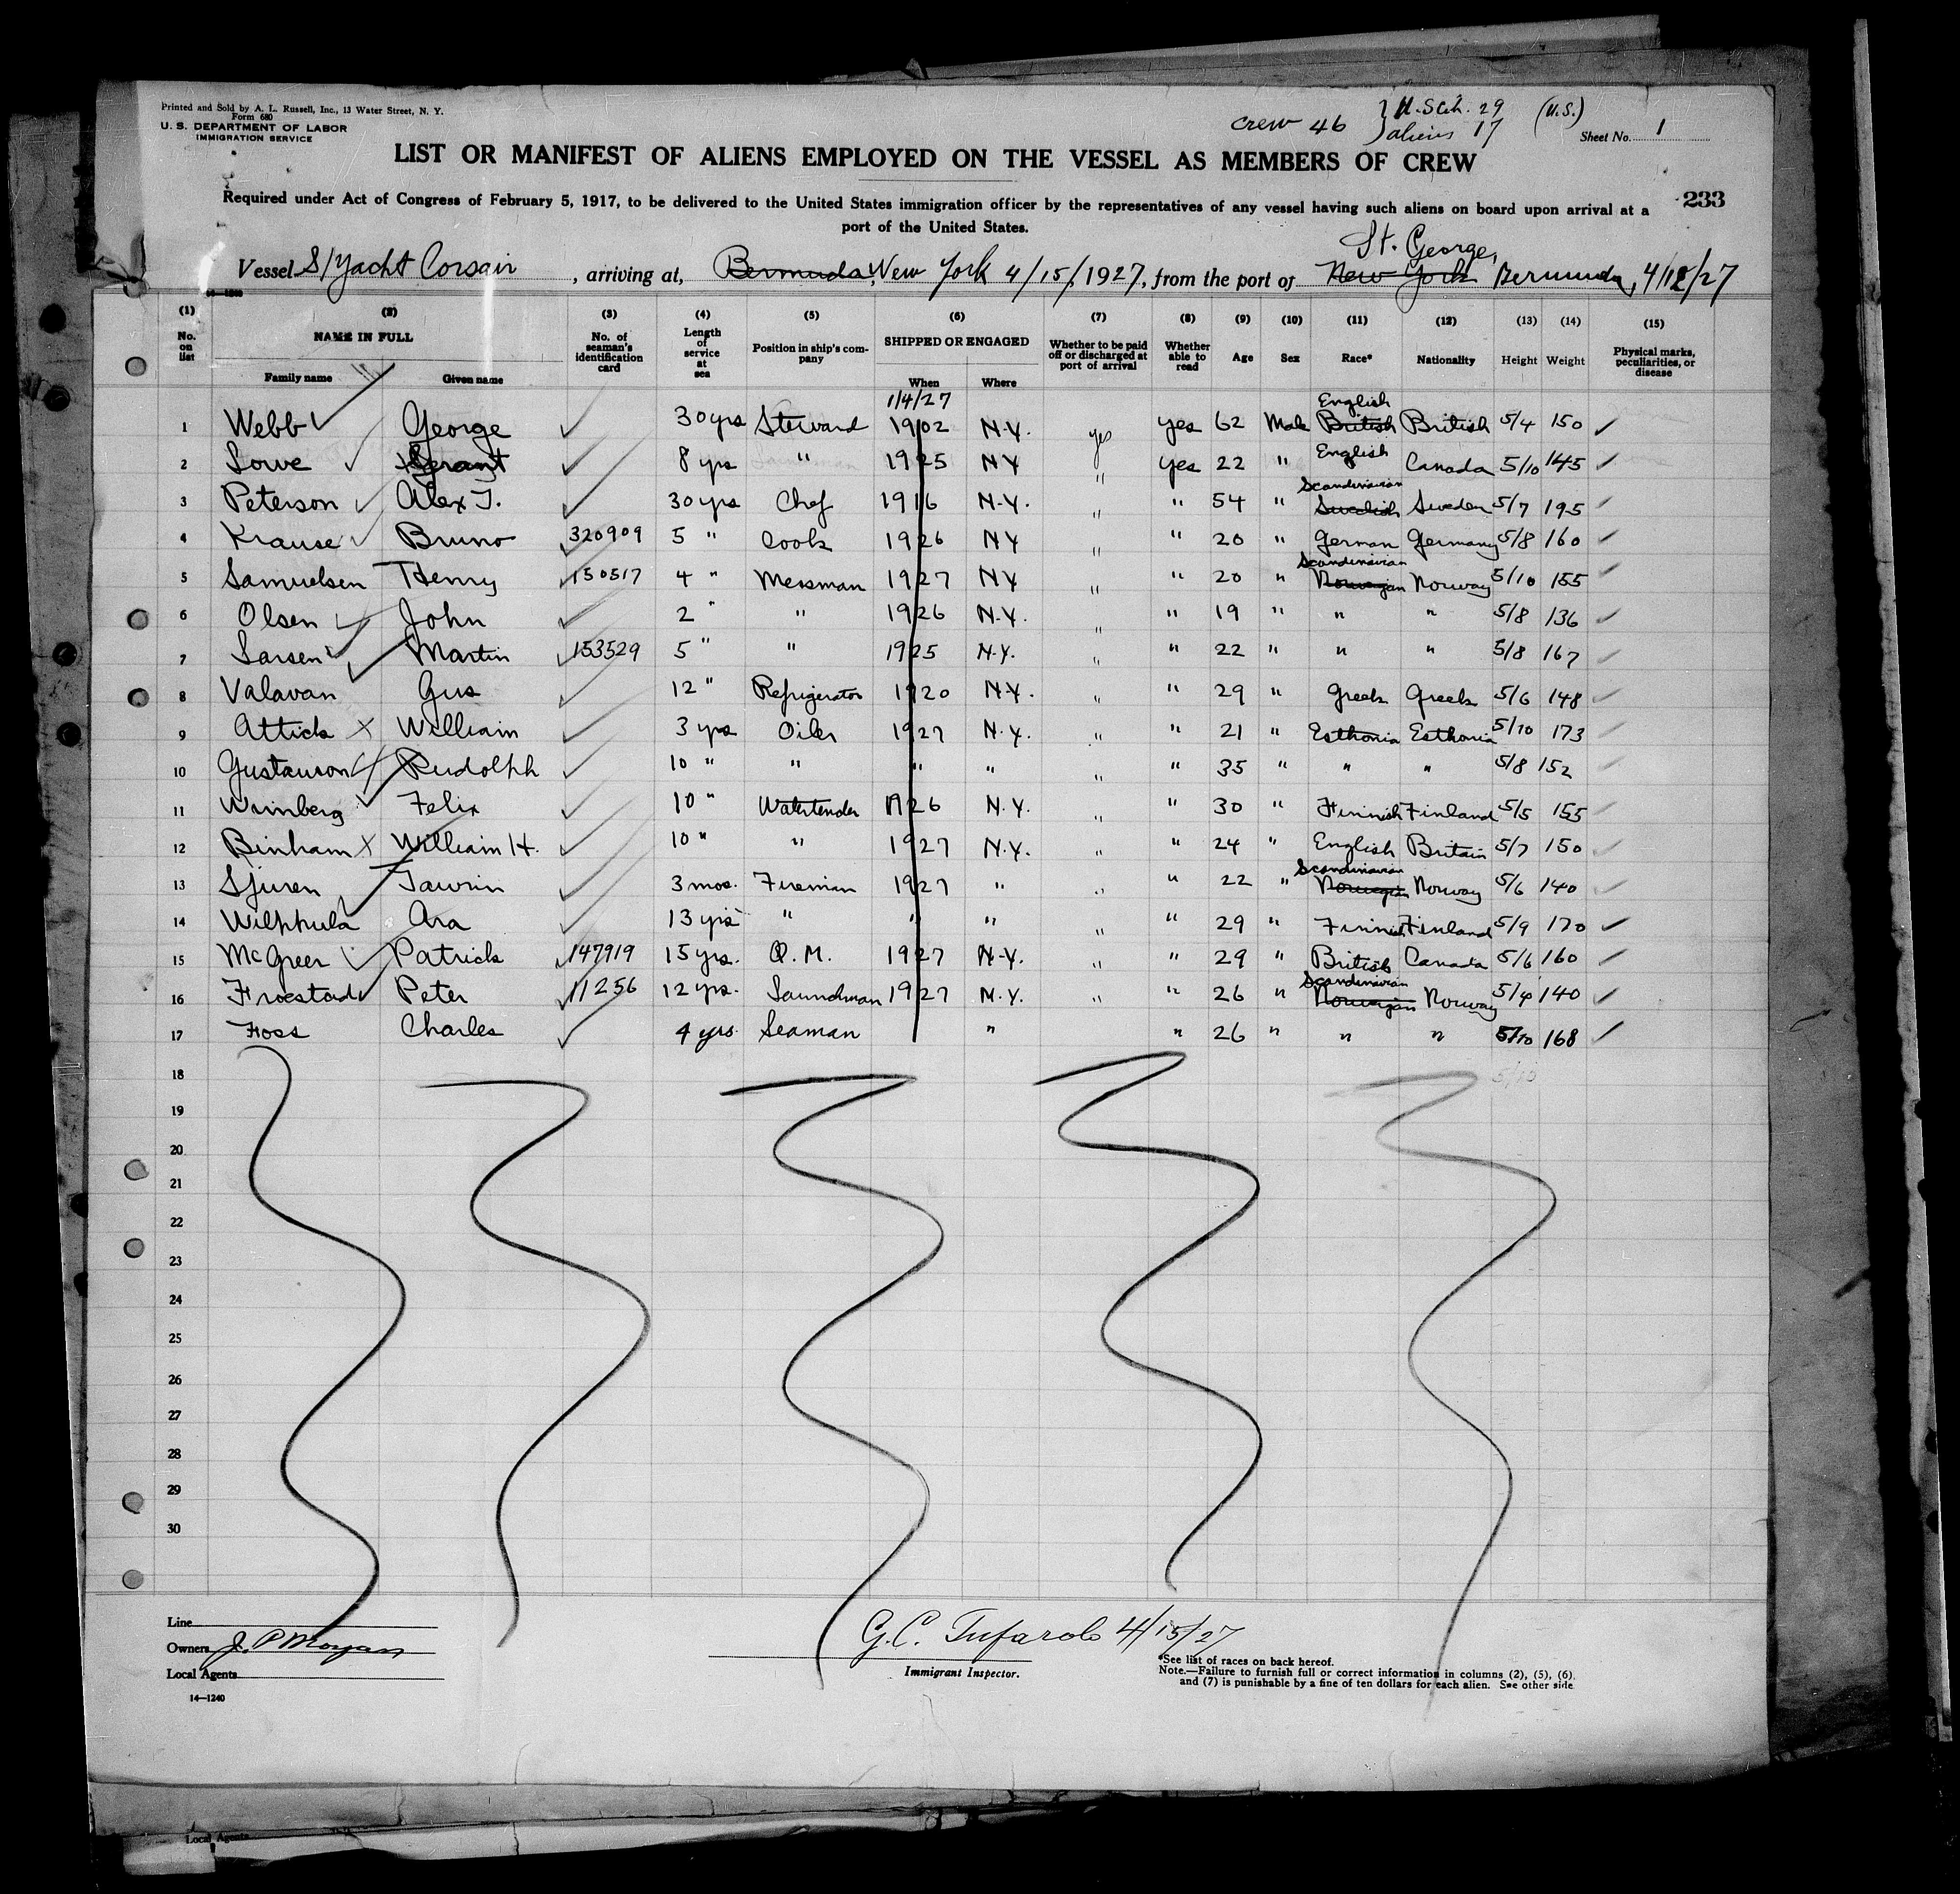 Printed and Sold by A. L. Russell, Inc., 13 Water Street, N. Y.
Form 680
U. S. DEPARTMENT OF LABOR
IMMIGRATION SERVICE
crew 46 } U.S. Cit. 29 (U.S.)
} aliens 17
Sheet No. 1
LIST OR MANIFEST OF ALIENS EMPLOYED ON THE VESSEL AS MEMBERS OF CREW
233
Required under Act of Congress of February 5, 1917, to be delivered to the United States immigration officer by the representatives of any vessel having such aliens on board upon arrival at a
port of the United States.
St. George,
Vessel S/Yacht Corsair, arriving at, Bermuda, New York 4/15/, 1927, from the port of New York Bermuda, 4/12/27
(1) (2) (3) (4) (5) (6) (7) (8) (9) (10) (11) (12) (13) (14) (15)
No. on list NAME IN FULL Family name Given name No. of seaman's identification card Length of service at sea Position in ship's company SHIPPED OR ENGAGED When Where Whether to be paid off or discharged at port of arrival Whether able to read Age Sex Race* Nationality Height Weight Physical marks, peculiarities, or disease
1/4/27 English
1 Webb George 30 yrs Steward 1902 N.Y. yes yes 62 Male British British 5/4 150
2 Lowe Grant 8 yrs " 1925 NY " yes 22 " English Canada 5/10 145
Scandinavian
3 Peterson Alex T. 30 yrs Chef 1916 N.Y. " " 54 " Swedish Sweden 5/7 195
4 Krause Bruno 320909 5 " Cook 1926 NY " " 20 " German Germany 5/8 160
Scandinavian
5 Samuelsen Henry 150517 4 " Messman 1927 NY " " 20 " Norwegian Norway 5/10 155
6 Olsen John 2 " " 1926 N.Y. " " 19 " " " 5/8 136
7 Larsen Martin 153529 5 " " 1925 N.Y. " " 22 " " " 5/8 167
8 Valavan Gus 12 " Refrigerator 1920 N.Y. " " 29 " Greek Greek 5/6 148
9 Attick William 3 yrs Oiler 1927 N.Y. " " 21 " Esthonia Esthonia 5/10 173
10 Gustavson Rudolph 10 " " " " " " 35 " " " 5/8 152
11 Wimberg Felix 10 " Watertender 1926 N.Y. " " 30 " Finnish Finland 5/5 155
12 Binham William H. 10 " " 1927 N.Y. " " 24 " English Britain 5/7 150
Scandinavian
13 Sjuren 3 mos. Fireman 1927 " " " 22 " Norwegian Norway 5/6 140
14 Wilphula Ara 13 yrs " " " " " 29 " Finnish Finland 5/9 170
15 McGreer Patrick 147919 15 yrs. Q.M. 1927 N.Y. " " 29 " British Canada 5/6 160
Scandinavian
16 Froestad Peter 11256 12 yrs. Launchman 1927 N.Y. " " 26 " Norwegian Norway 5/4 140
17 Foss Charles 4 yrs. Seaman " " 26 " " " 5/10 168
18 5/10
19
20
21
22
23
24
25
26
27
28
29
30
Line
Owners J. P. Morgan
Local Agents
14—1240
G.C. Tufarolo 4/15/27
Immigrant Inspector.
*See list of races on back hereof.
Note.—Failure to furnish full or correct information in columns (2), (5), (6),
and (7) is punishable by a fine of ten dollars for each alien. See other side.
Local Agents